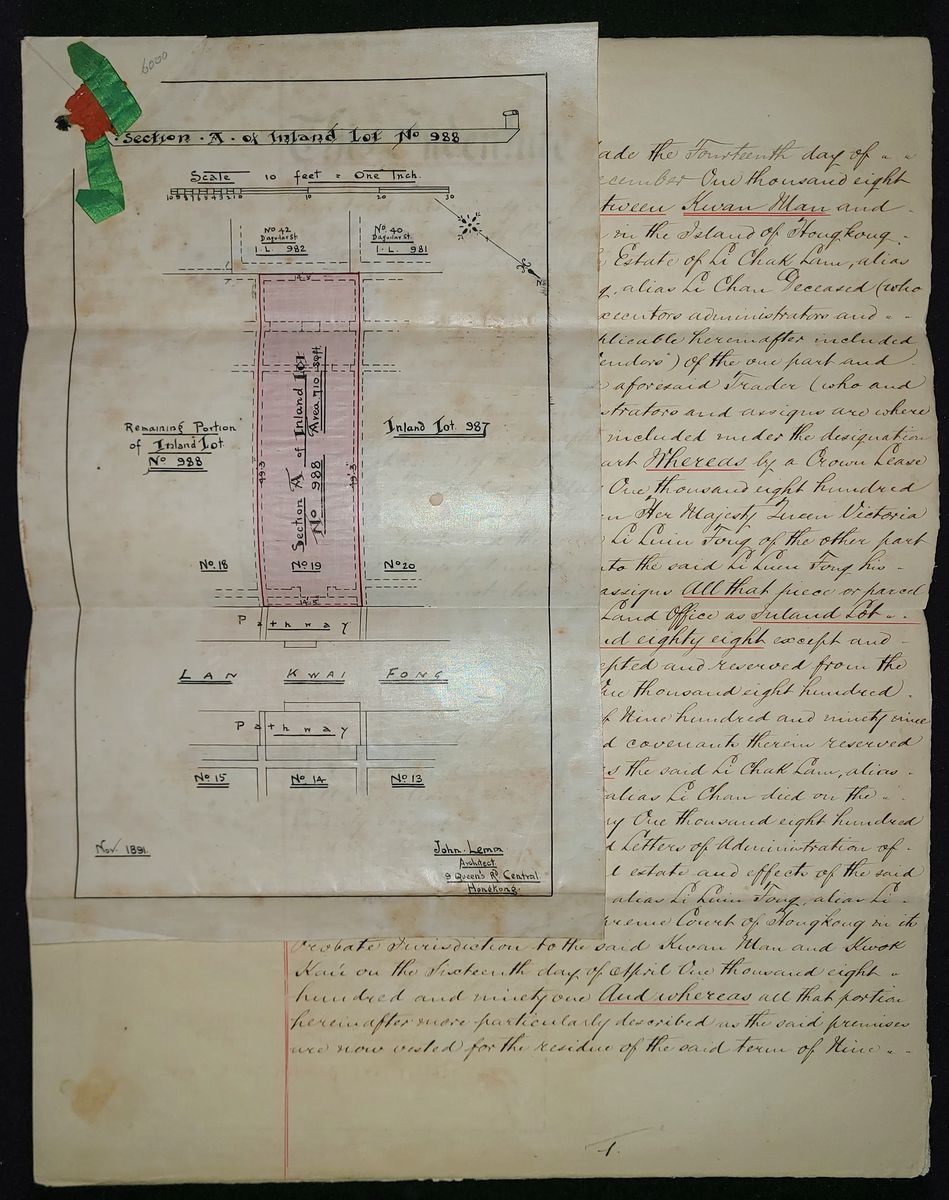 6000
Section . A . of Inland Lot No 988
Scale 10 feet = One Inch.
10 9 8 7 6 5 4 3 2 1 0 10 20 30
No 42
Daguilar St.
I. L. 982
No 40
Daguilar St.
I. L. 981
14.5
Remaining Portion
of Inland Lot
No 988
49.3
Section A of Inland Lot
No 988
Area 710 sq ft.
49.3
Inland Lot 987
No. 18
No 19
No 20
14.5
Pathway
LAN KWAI FONG
Pathway
No 15
No 14
No 13
Nov. 1891.
John Lemm
Architect
9 Queen's Rd Central
Hongkong.
ade the Fourteenth day of
ecember One thousand eight
tween Kwan Man and
in the Island of Hongkong
Estate of Li Chak Lam, alias
alias Li Chan Deceased (who
xecutors administrators and
plicable hereinafter included
endors") of the one part and
aforesaid Trader (who and
strators and assigns are where
included under the designation
art Whereas by a Crown Lease
One thousand eight hundred
n Her Majesty Queen Victoria
Li Luin Fong of the other part
to the said Li Luen Fong his
assigns All that piece or parcel
Land Office as Inland Lot
nd eighty eight except and
epted and reserved from the
One thousand eight hundred
f Nine hundred and ninety nine
d covenants therein reserved
s the said Li Chak Lam, alias
alias Li Chan died on the
ry One thousand eight hundred
d Letters of Administration of
l estate and effects of the said
alias Li Luin Fong, alias Li
preme Court of Hongkong in its
Probate Jurisdiction to the said Kwan Man and Kwok
on the Sixteenth day of April One thousand eight
hundred and ninety one And whereas all that portion
hereinafter more particularly described as the said premises
are now vested for the residue of the said term of Nine
1.